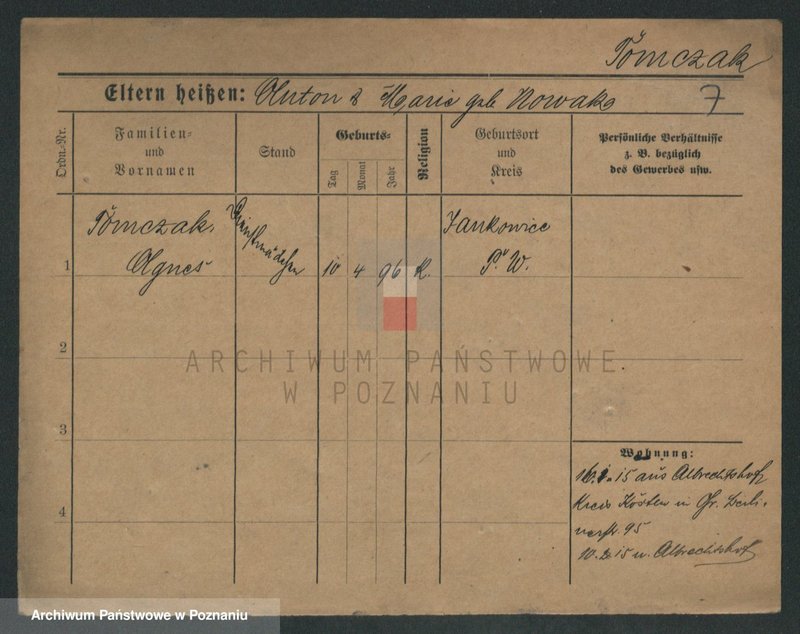 Tomczak
Eltern heißen: Anton & Marie geb. Nowak
7
Ordn.-Nr.
Familien-
und
Vornamen
Stand
Geburts-
Tag
Monat
Jahr
Religion
Geburtsort
und
Kreis
Persönliche Verhältnisse
z. B. bezüglich
des Gewerbes usw.
1
Tomczak
Agnes
Dienstmädchen
10
4
96
K.
Jankowice
P. W.
2
ARCHIWUM PAŃSTWOWE
W POZNANIU
3
4
Wohnung:
15 aus Albrechtshof
Kreis Kosten n Gr. Berli-
nerstr. 95
10.2.15 n. Albrechtshof
Archiwum Państwowe w Poznaniu